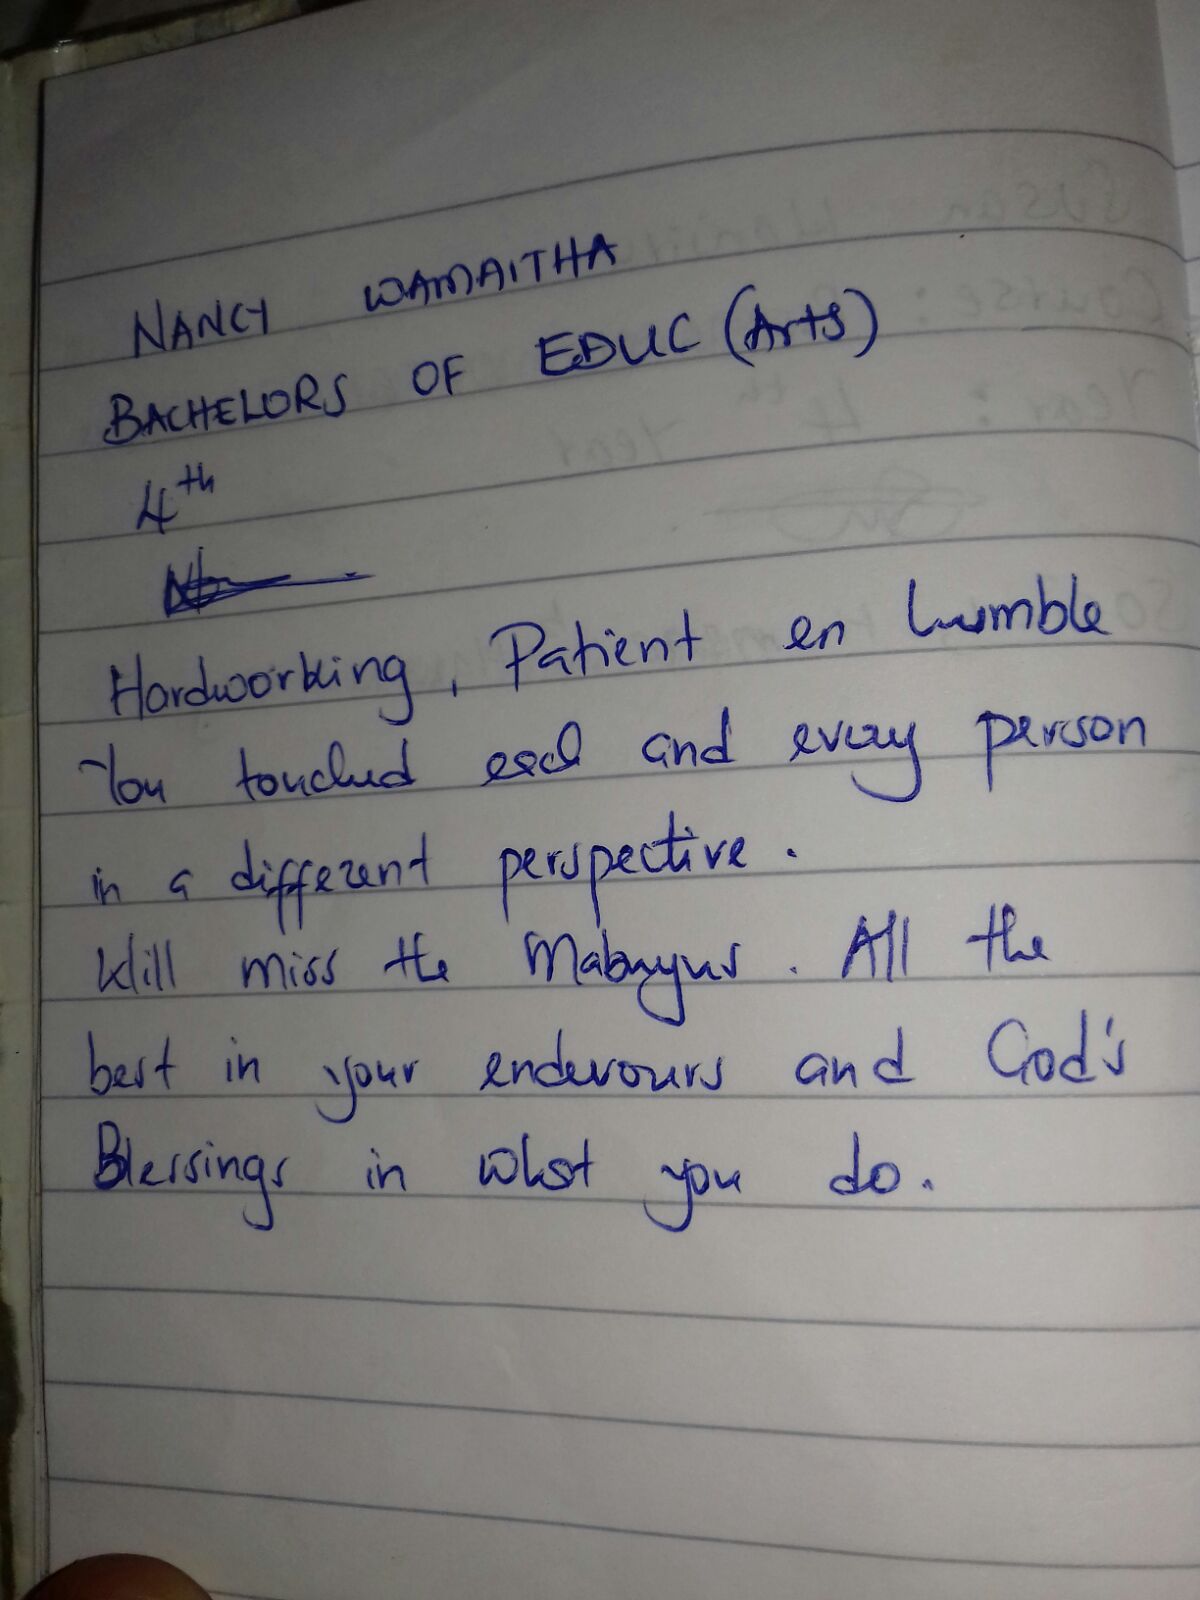 NANCY WAMAITHA
BACHELORS OF EDUC (Arts)
4th
Hardworking, Patient en humble
You touched each and every person
in a different perspective.
Will miss the
All the
best in your endevours and God's
Blessings in what you do.